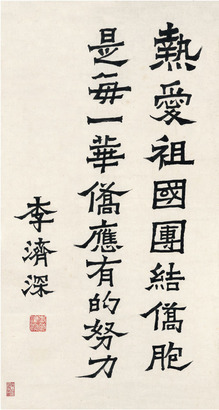 熱愛祖國團結僑胞
是每一華僑應有的努力
李濟深